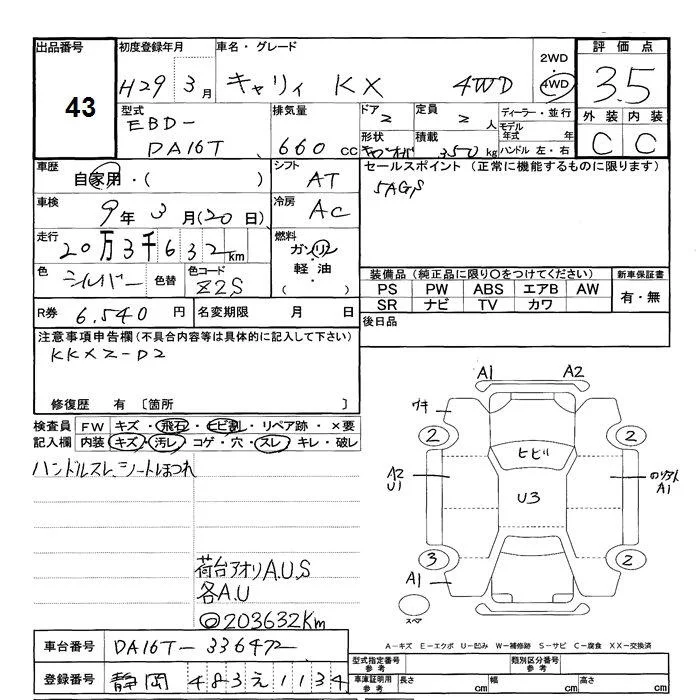 出品番号 初度登録年月 車名・グレード 2WD 評価点
43 H29 3月 キャリィ KX 4WD 4WD 3.5
型式 排気量 ドア 定員 ディーラー・並行 外装 内装
EBD- 2 2人 モデル年式 年
DA16T 660cc 形状 積載 350kg ハンドル 左・右 C C
車歴 シフト セールスポイント (正常に機能するものに限ります)
自家用・( ) AT 5AGS
車検 冷房
9年3月(20日) AC
走行 燃料
20万3千632km ガソリン
色 色替 色コード 軽油 装備品 (純正品に限り○をつけてください) 新車保証書
シルバー Z2S ( ) PS PW ABS エアB AW 有・無
SR ナビ TV カワ
R券 6.540円 名変期限 月 日 後日品
注意事項申告欄 (不具合内容等は具体的に記入して下さい)
KKXZ-D2
修復歴 有 〔箇所 〕
検査員 FW キズ・飛石・ヒビ割・リペア跡・×要
記入欄 内装 キズ・汚レ・コゲ・穴・スレ・キレ・破レ
ハンドルスレ、シートほつれ
荷台アオリA.U.S
各A.U
◎203632Km
A1 A2
ウキ
2 2
ヒビワレ
A2 U1 U3 A1
3 2
A1
スペア
A-キズ E-エクボ U-凹み W-補修跡 S-サビ C-腐食 XX-交換済
車台番号 DA16T-336472
型式指定番号 参考 類別区分番号 参考
登録番号 静岡 483え1134
車庫証明用 参考 長さ cm 幅 cm 高さ cm